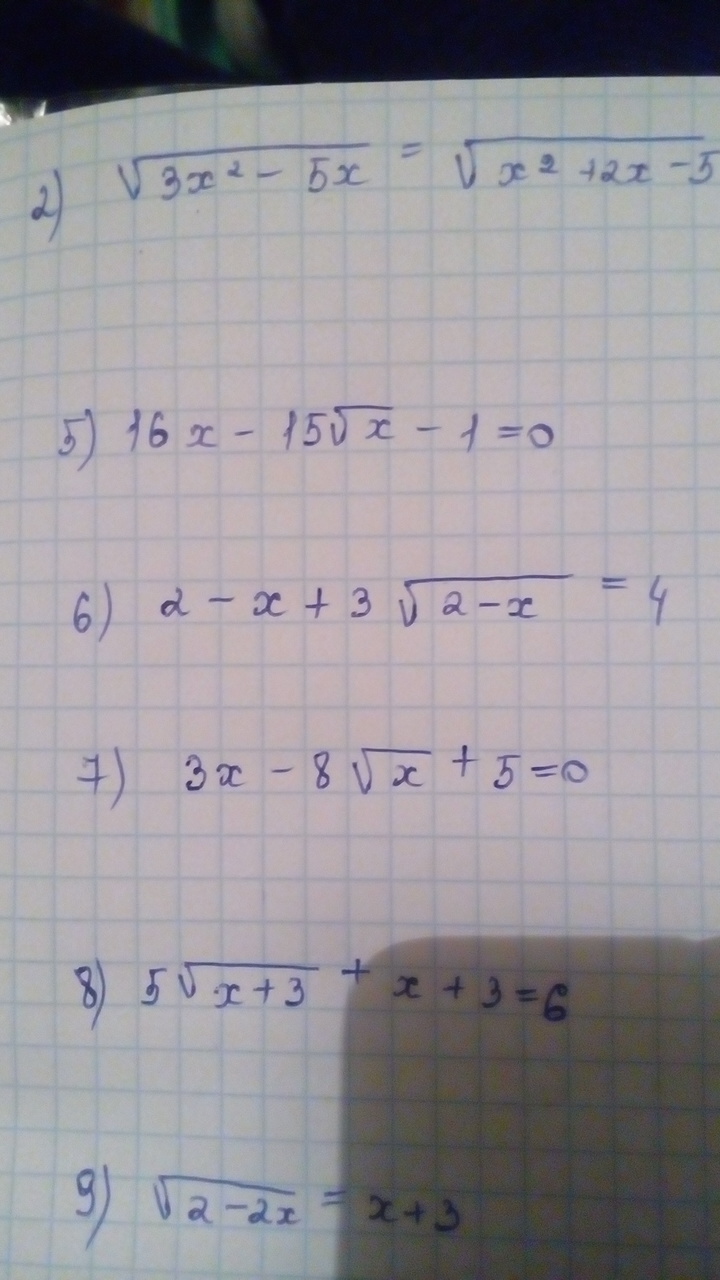 2) √(3x² - 5x) = √(x² + 2x - 5
5) 16x - 15√x - 1 = 0
6) 2 - x + 3√(2 - x) = 4
7) 3x - 8√x + 5 = 0
8) 5√(x + 3) + x + 3 = 6
9) √(2 - 2x) = x + 3